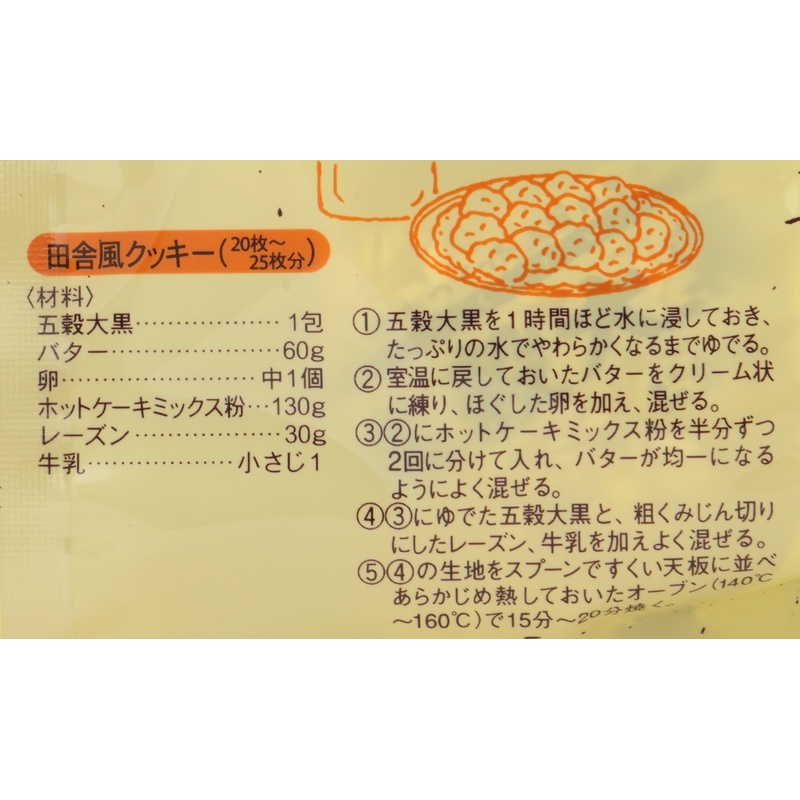 田舎風クッキー(20枚〜25枚分)
〈材料〉
五穀大黒……………… 1包
バター……………… 60g
卵…………………… 中1個
ホットケーキミックス粉… 130g
レーズン……………… 30g
牛乳……………… 小さじ1
① 五穀大黒を1時間ほど水に浸しておき、
たっぷりの水でやわらかくなるまでゆでる。
② 室温に戻しておいたバターをクリーム状
に練り、ほぐした卵を加え、混ぜる。
③②にホットケーキミックス粉を半分ずつ
2回に分けて入れ、バターが均一になる
ようによく混ぜる。
④③にゆでた五穀大黒と、粗くみじん切り
にしたレーズン、牛乳を加えよく混ぜる。
⑤④の生地をスプーンですくい天板に並べ
あらかじめ熱しておいたオーブン(140℃
〜160℃)で15分〜20分焼く。